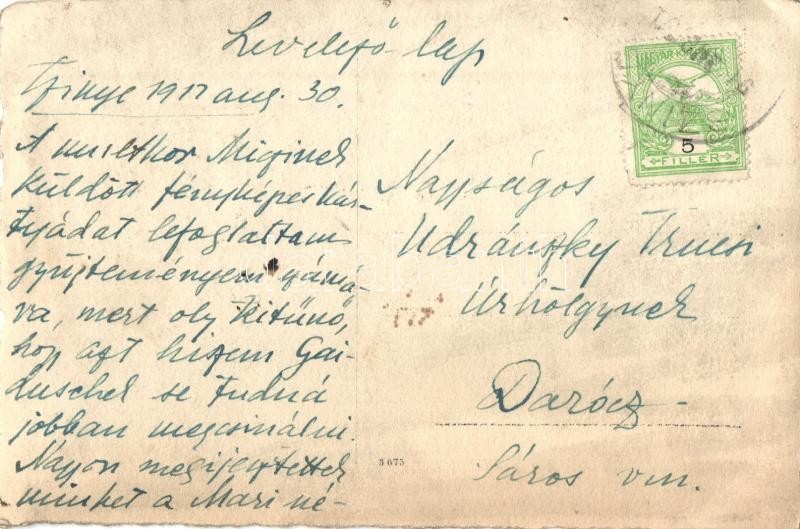 Levelező-lap
Izsinye 1917 aug. 30.
A multkor Miginek
küldött fényképes kár-
tyádat lefoglaltam
gyűjteményem számá-
ra, mert oly kitünő,
hogy azt hiszem Gai-
duschek se tudná
jobban megcsinálni.
Nagyon megijesztettek
minket a Mari né-
MAGYAR KIR. POSTA
5
FILLER
Nagyságos
Udránszky Trucsi
Úrhölgynek
Darócz
Sáros vm.
3 675